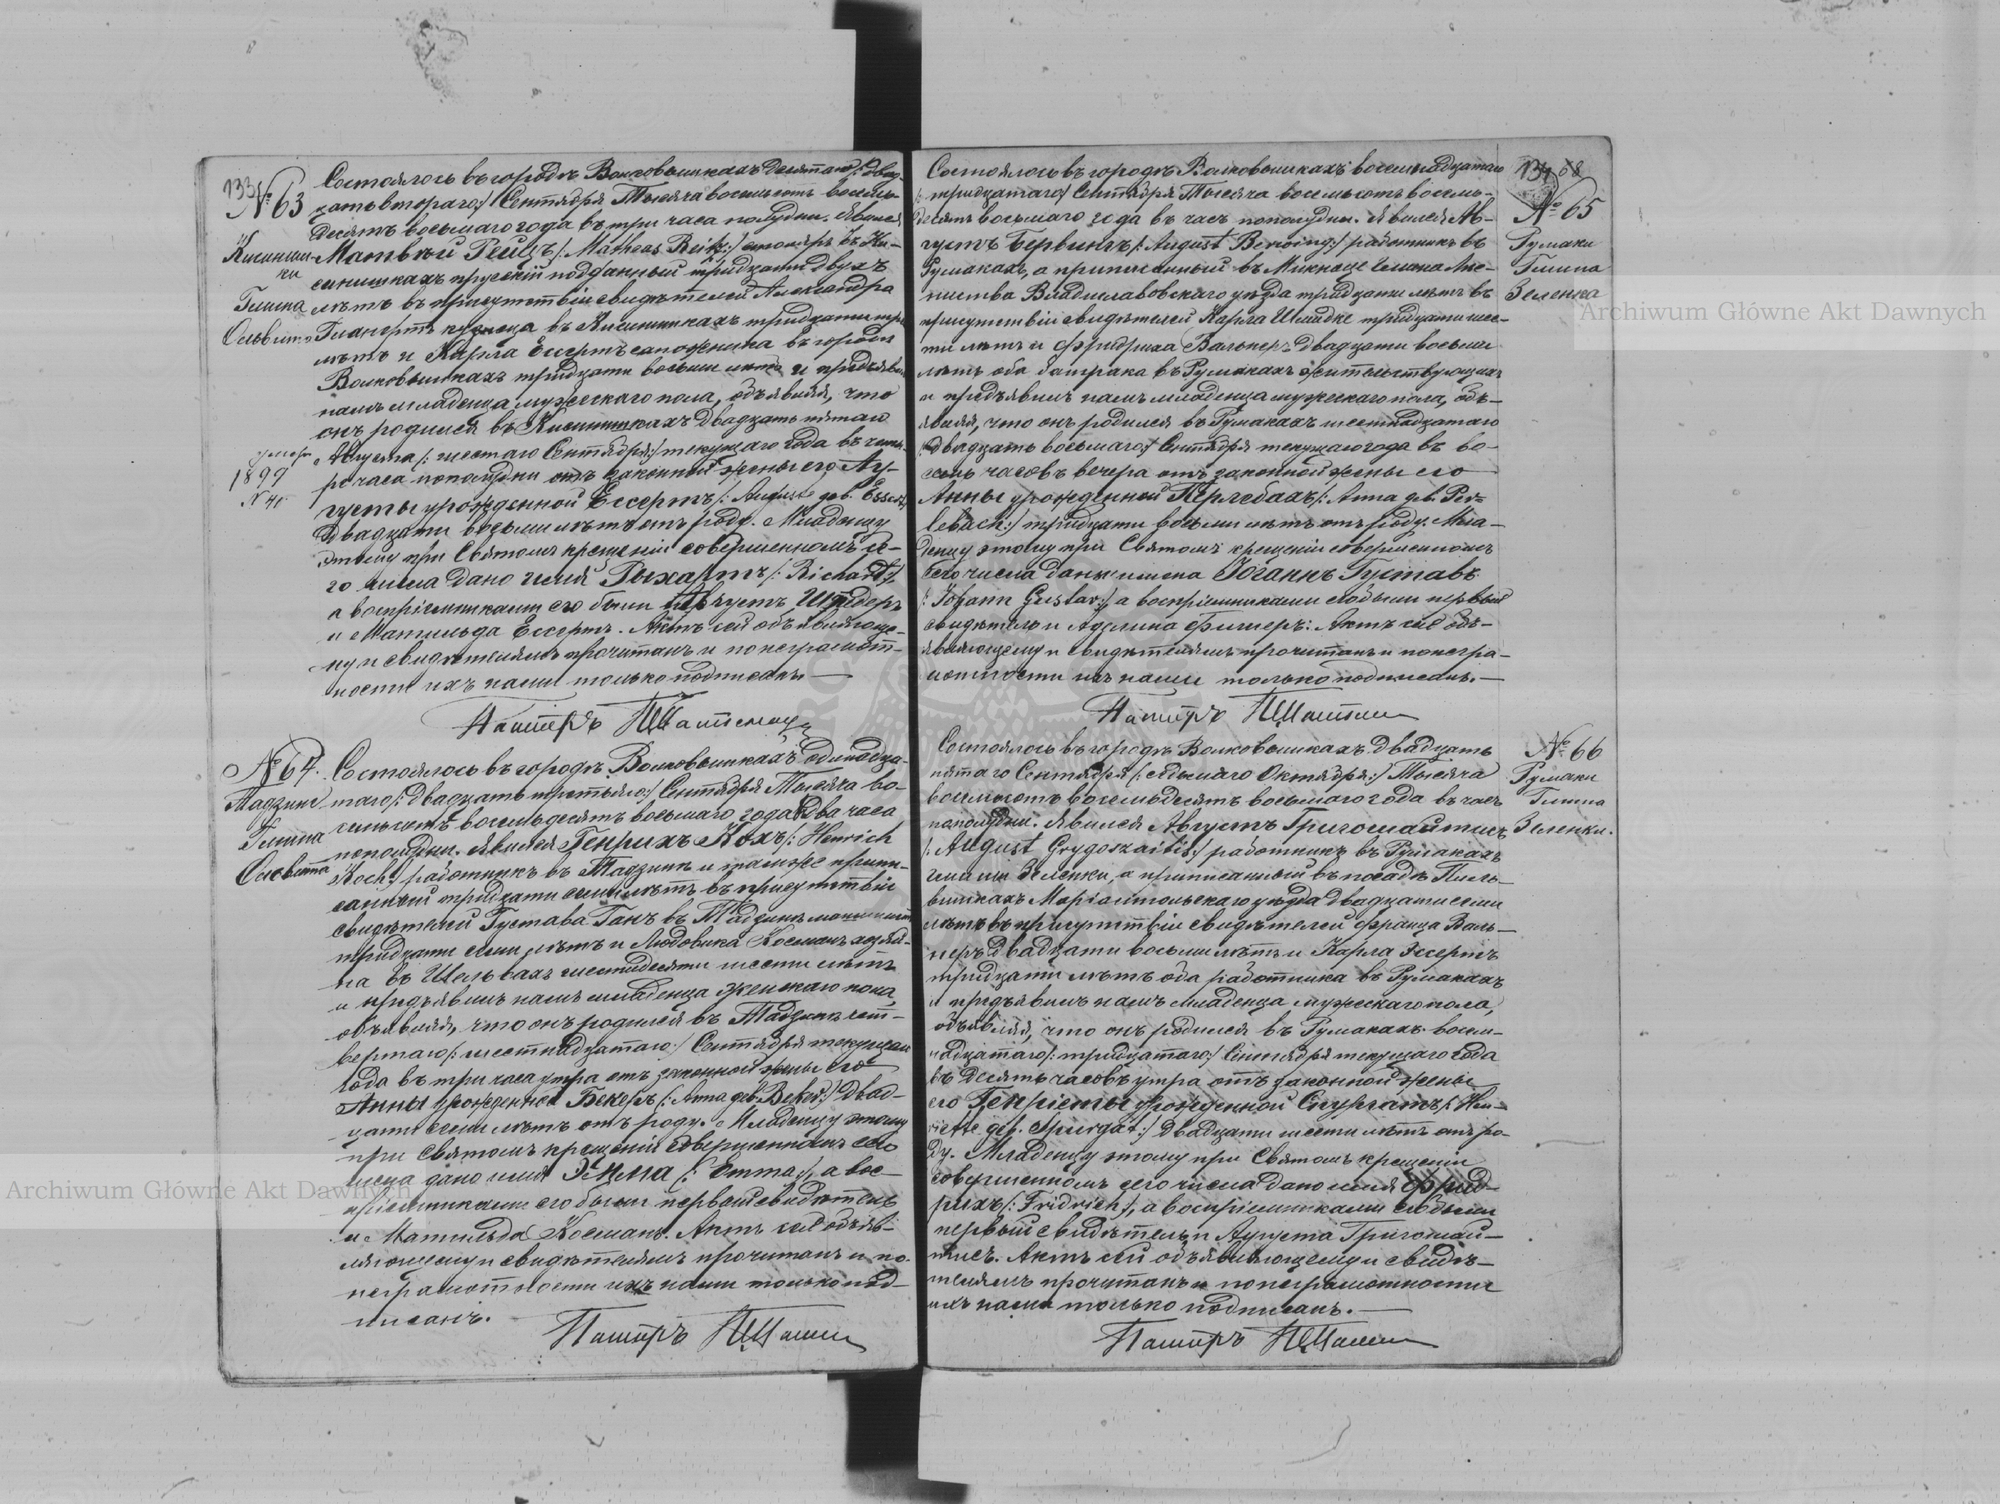 133
№ 63
Кисинишки
Гмина
Ольвита
умеръ
1899
N 41
Состоялось въ городѣ Волковышкахъ десятаго /: двад-
цать втораго :/ Сентября Тысяча восемьсотъ восемь-
десятъ восьмаго года въ три часа полудни. Явился
Матвѣй Рейцъ /: Matheas Reitz :/ столяръ въ Ки-
синишкахъ прусскій подданный тридцати двухъ
лѣтъ въ присутствіи свидѣтелей Александра
кузнеца въ Кисинишкахъ тридцати три
лѣтъ и Карла Ессертъ сапожника въ городѣ
Волковышкахъ тридцати восьми лѣтъ и предъявилъ
намъ младенца мужескаго пола, объявляя, что
онъ родился въ Кисинишкахъ двадцать пятаго
Августа /: шестаго Сентября :/ текущаго года въ четы-
ре часа пополудни отъ законной жены его Ав-
густы урожденной Ессертъ /: Auguste geb. Essert
двадцати восьми лѣтъ отъ роду. Младенцу
этому при Святомъ крещеніи совершенномъ се-
го числа дано имя Рыхартъ /: Richard :/
а воспріемниками его были Августъ Шредеръ
и Матильда Ессертъ. Актъ сей объявляюще-
му и свидѣтелямъ прочитанъ и по неграмот-
ности ихъ нами только подписанъ. —
Пасторъ
№ 64.
Тадзинъ
Гмина
Ольвита
Состоялось въ городѣ Волковышкахъ одинадца-
таго /: двадцать третьяго :/ Сентября Тысяча во-
семьсотъ восемьдесятъ восьмаго года въ два часа
пополудни. Явился Генрихъ Кохъ /: Henrich
Koch :/ работникъ въ Тадзинѣ и тамже припи-
санный тридцати семи лѣтъ въ присутствіи
свидѣтелей Густава Ганъ въ Тадзинѣ
тридцати семи лѣтъ и Людовика Косманъ хозяи-
на въ Шельвахъ шестидесяти шести лѣтъ
и предъявилъ намъ младенца женскаго пола,
объявляя, что онъ родился въ Тадзинѣ чет-
вертаго /: шестнадцатаго :/ Сентября текущаго
года въ три часа утра отъ законной жены его
Анны урожденной Бекеръ /: Anna geb. Beker :/ двад-
цати семи лѣтъ отъ роду. Младенцу этому
при Святомъ крещеніи совершенномъ сего
числа дано имя Эмма /: Emma :/, а вос-
пріемниками его были первый свидѣтель
и Матильда Косманъ. Актъ сей объяв-
ляющему и свидѣтелямъ прочитанъ и по
неграмотности ихъ нами только под-
писанъ.
Пасторъ
134 68
№ 65
Румаки
Гмина
Зеленка
Состоялось въ городѣ Волковышкахъ восемнадцатаго
/: тридцатаго :/ Сентября Тысяча восемьсотъ восемь-
десятъ восьмаго года въ часъ пополудни. Явился Ав-
густъ Бервингъ /: August Berwing :/ работникъ въ
Румакахъ, а приписанный въ
Владиславовскаго уѣзда тридцати лѣтъ въ
присутствіи свидѣтелей Карла Шмидке тридцати шес-
ти лѣтъ и Фридриха Вальнеръ двадцати восьми
лѣтъ оба батрака въ Румакахъ жительствующихъ
и предъявилъ намъ младенца мужескаго пола, объ-
являя, что онъ родился въ Румакахъ шестнадцатаго
/: двадцать восьмаго :/ Сентября текущаго года въ во-
семь часовъ вечера отъ законной жены его
Анны урожденной Перлебахъ /: Anna geb. Per-
lebach :/ тридцати восьми лѣтъ отъ роду. Мла-
денцу этому при Святомъ крещеніи совершенномъ
сего числа даны имена Іоганнъ Густавъ
/: Johann Gustav :/, а воспріемниками его были первый
свидѣтель и Аделина Фишеръ. Актъ сей объ-
являющему и свидѣтелямъ прочитанъ и по негра-
мотности ихъ нами только подписанъ. —
Пасторъ
№ 66
Румаки
Гмина
Зеленка.
Состоялось въ городѣ Волковышкахъ двадцать
пятаго Сентября /: седьмаго Октября :/ Тысяча
восемьсотъ восемьдесятъ восьмаго года въ часъ
пополудни. Явился Августъ Григошайтисъ
/: August Grygoszaitis :/ работникъ въ Румакахъ
гмины Зеленки, а приписанный въ посадѣ Пиль-
вишкахъ Маріампольскаго уѣзда двадцати семи
лѣтъ въ присутствіи свидѣтелей Франца Валь-
неръ двадцати восьми лѣтъ и Карла Эссертъ
тридцати лѣтъ оба работника въ Румакахъ
и предъявилъ намъ младенца мужескаго пола,
объявляя, что онъ родился въ Румакахъ восем-
надцатаго /: тридцатаго :/ Сентября текущаго года
въ десять часовъ утра отъ законной жены
его Генріеты урожденной Спургатъ /: Hen-
riette geb. Spurgat :/ двадцати шести лѣтъ отъ ро-
ду. Младенцу этому при Святомъ крещеніи
совершенномъ сего числа дано имя Фрид-
рихъ /: Fridrich :/, а воспріемниками его были
первый свидѣтель и Августа Григошай-
тисъ. Актъ сей объявляющему и свидѣ-
телямъ прочитанъ и по неграмотности
ихъ нами только подписанъ. —
Пасторъ
Archiwum Główne Akt Dawnych
Archiwum Główne Akt Dawnych